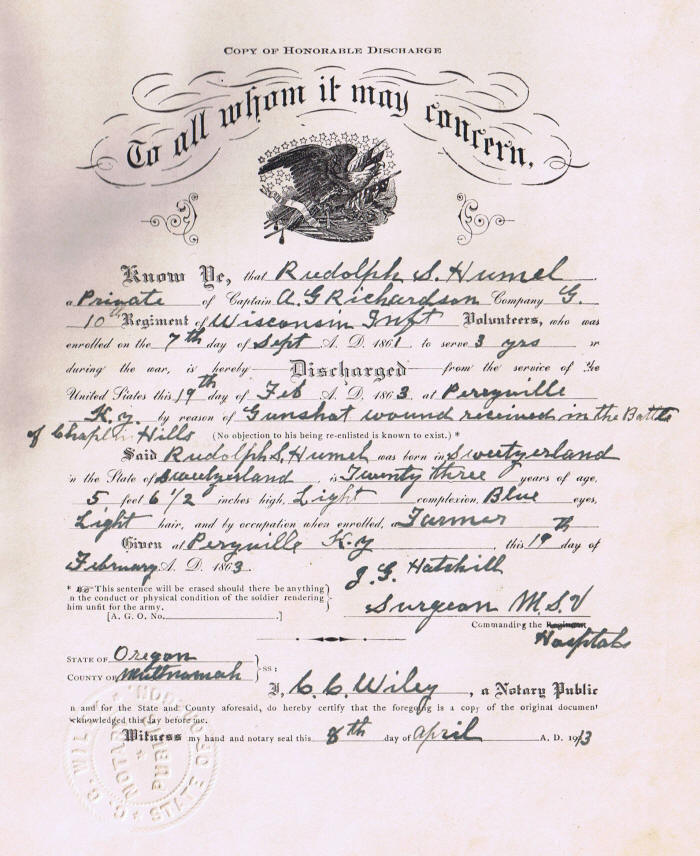 COPY OF HONORABLE DISCHARGE
To all whom it may concern.
Know Ye, that Rudolph S. Humel
a Private of Captain A. G Richardson Company G.
10th Regiment of Wisconsin Inft Volunteers, who was
enrolled on the 7th day of Sept A. D. 1861 to serve 3 yrs or
during the war, is hereby Discharged from the service of the
United States this 19th day of Feb A. D. 1863 at Pereyville
K.y. by reason of Gunshot wound received in the Battle
of Chaplin Hills (No objection to his being re-enlisted is known to exist.) *
Said Rudolph S. Humel was born in Sweetzerland
in the State of Sweetzerland, is Twenty three years of age,
5 feet 6 1/2 inches high, Light complexion, Blue eyes,
Light hair, and by occupation when enrolled, a Farmar
Given at Peryville K.y this 19th day of
February A. D. 1863.
* This sentence will be erased should there be anything
n the conduct or physical condition of the soldier rendering
him unfit for the army.
[A. G. O. No. .]
J. G. Hatchill
Surgeon M.S.V
Commanding the Regiment
Hospitals
STATE OF Oregon
COUNTY OF Multnamah
ss:
I, C. C. Wiley, a Notary Public
n and for the State and County aforesaid, do hereby certify that the foregoing is a copy of the original document
cknowledged this day before me.
Witness my hand and notary seal this 8th day of April A. D. 1913
C. C. WIL
NOTARY PUBLIC
STATE OF OREGON